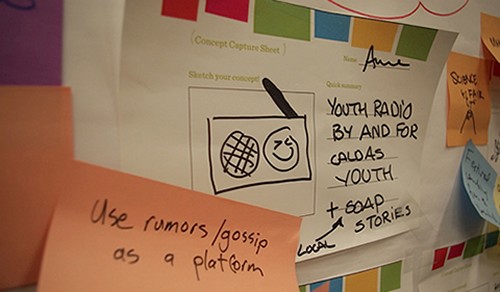 {Concept Capture Sheet}
Name Anne
Sketch your concept!
Quick summary
YOUTH RADIO
BY AND FOR
CALDAS
YOUTH
+ SOAP
STORIES
LOCAL
Use rumors/gossip
as a platform
SCIENCE
FAIR
Festival